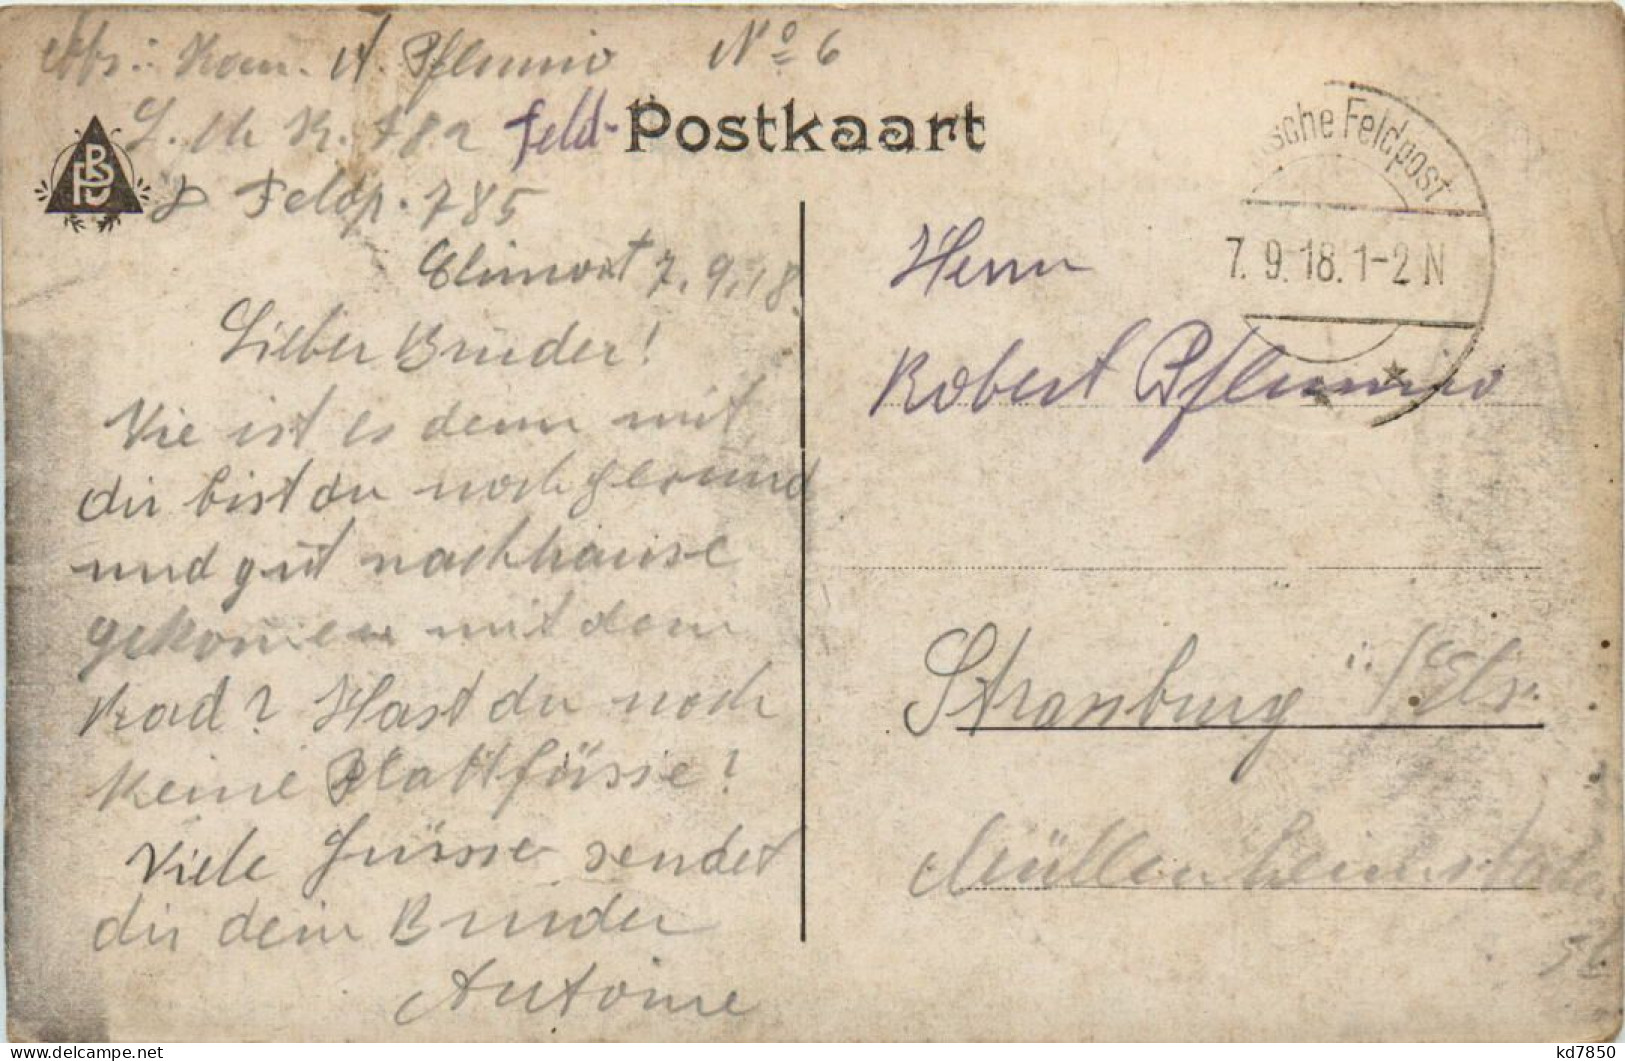 Abs: Kan. A. Pflumio No 6
L. M. K. 782 Feld-Postkaart
D Feldp. 785
BP
7. 9. 18.
Lieber Bruder!
Wie ist es denn mit
dir bist du noch gesund
und gut nachhause
gekommen mit dem
Rad? Hast du noch
keine Plattfüsse?
Viele Grüsse sendet
dir dein Bruder
Antoine
sche Feldpost
7. 9. 18. 1-2 N
Herrn
Robert Pflumio
Strassburg i. Els.
Müllenheimstaden
kd7850